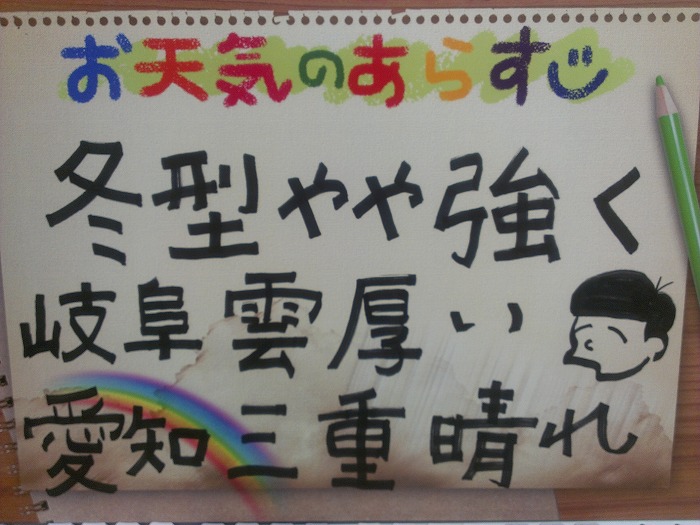 お天気のあらすじ
冬型やや強く
岐阜雲厚い
愛知三重晴れ